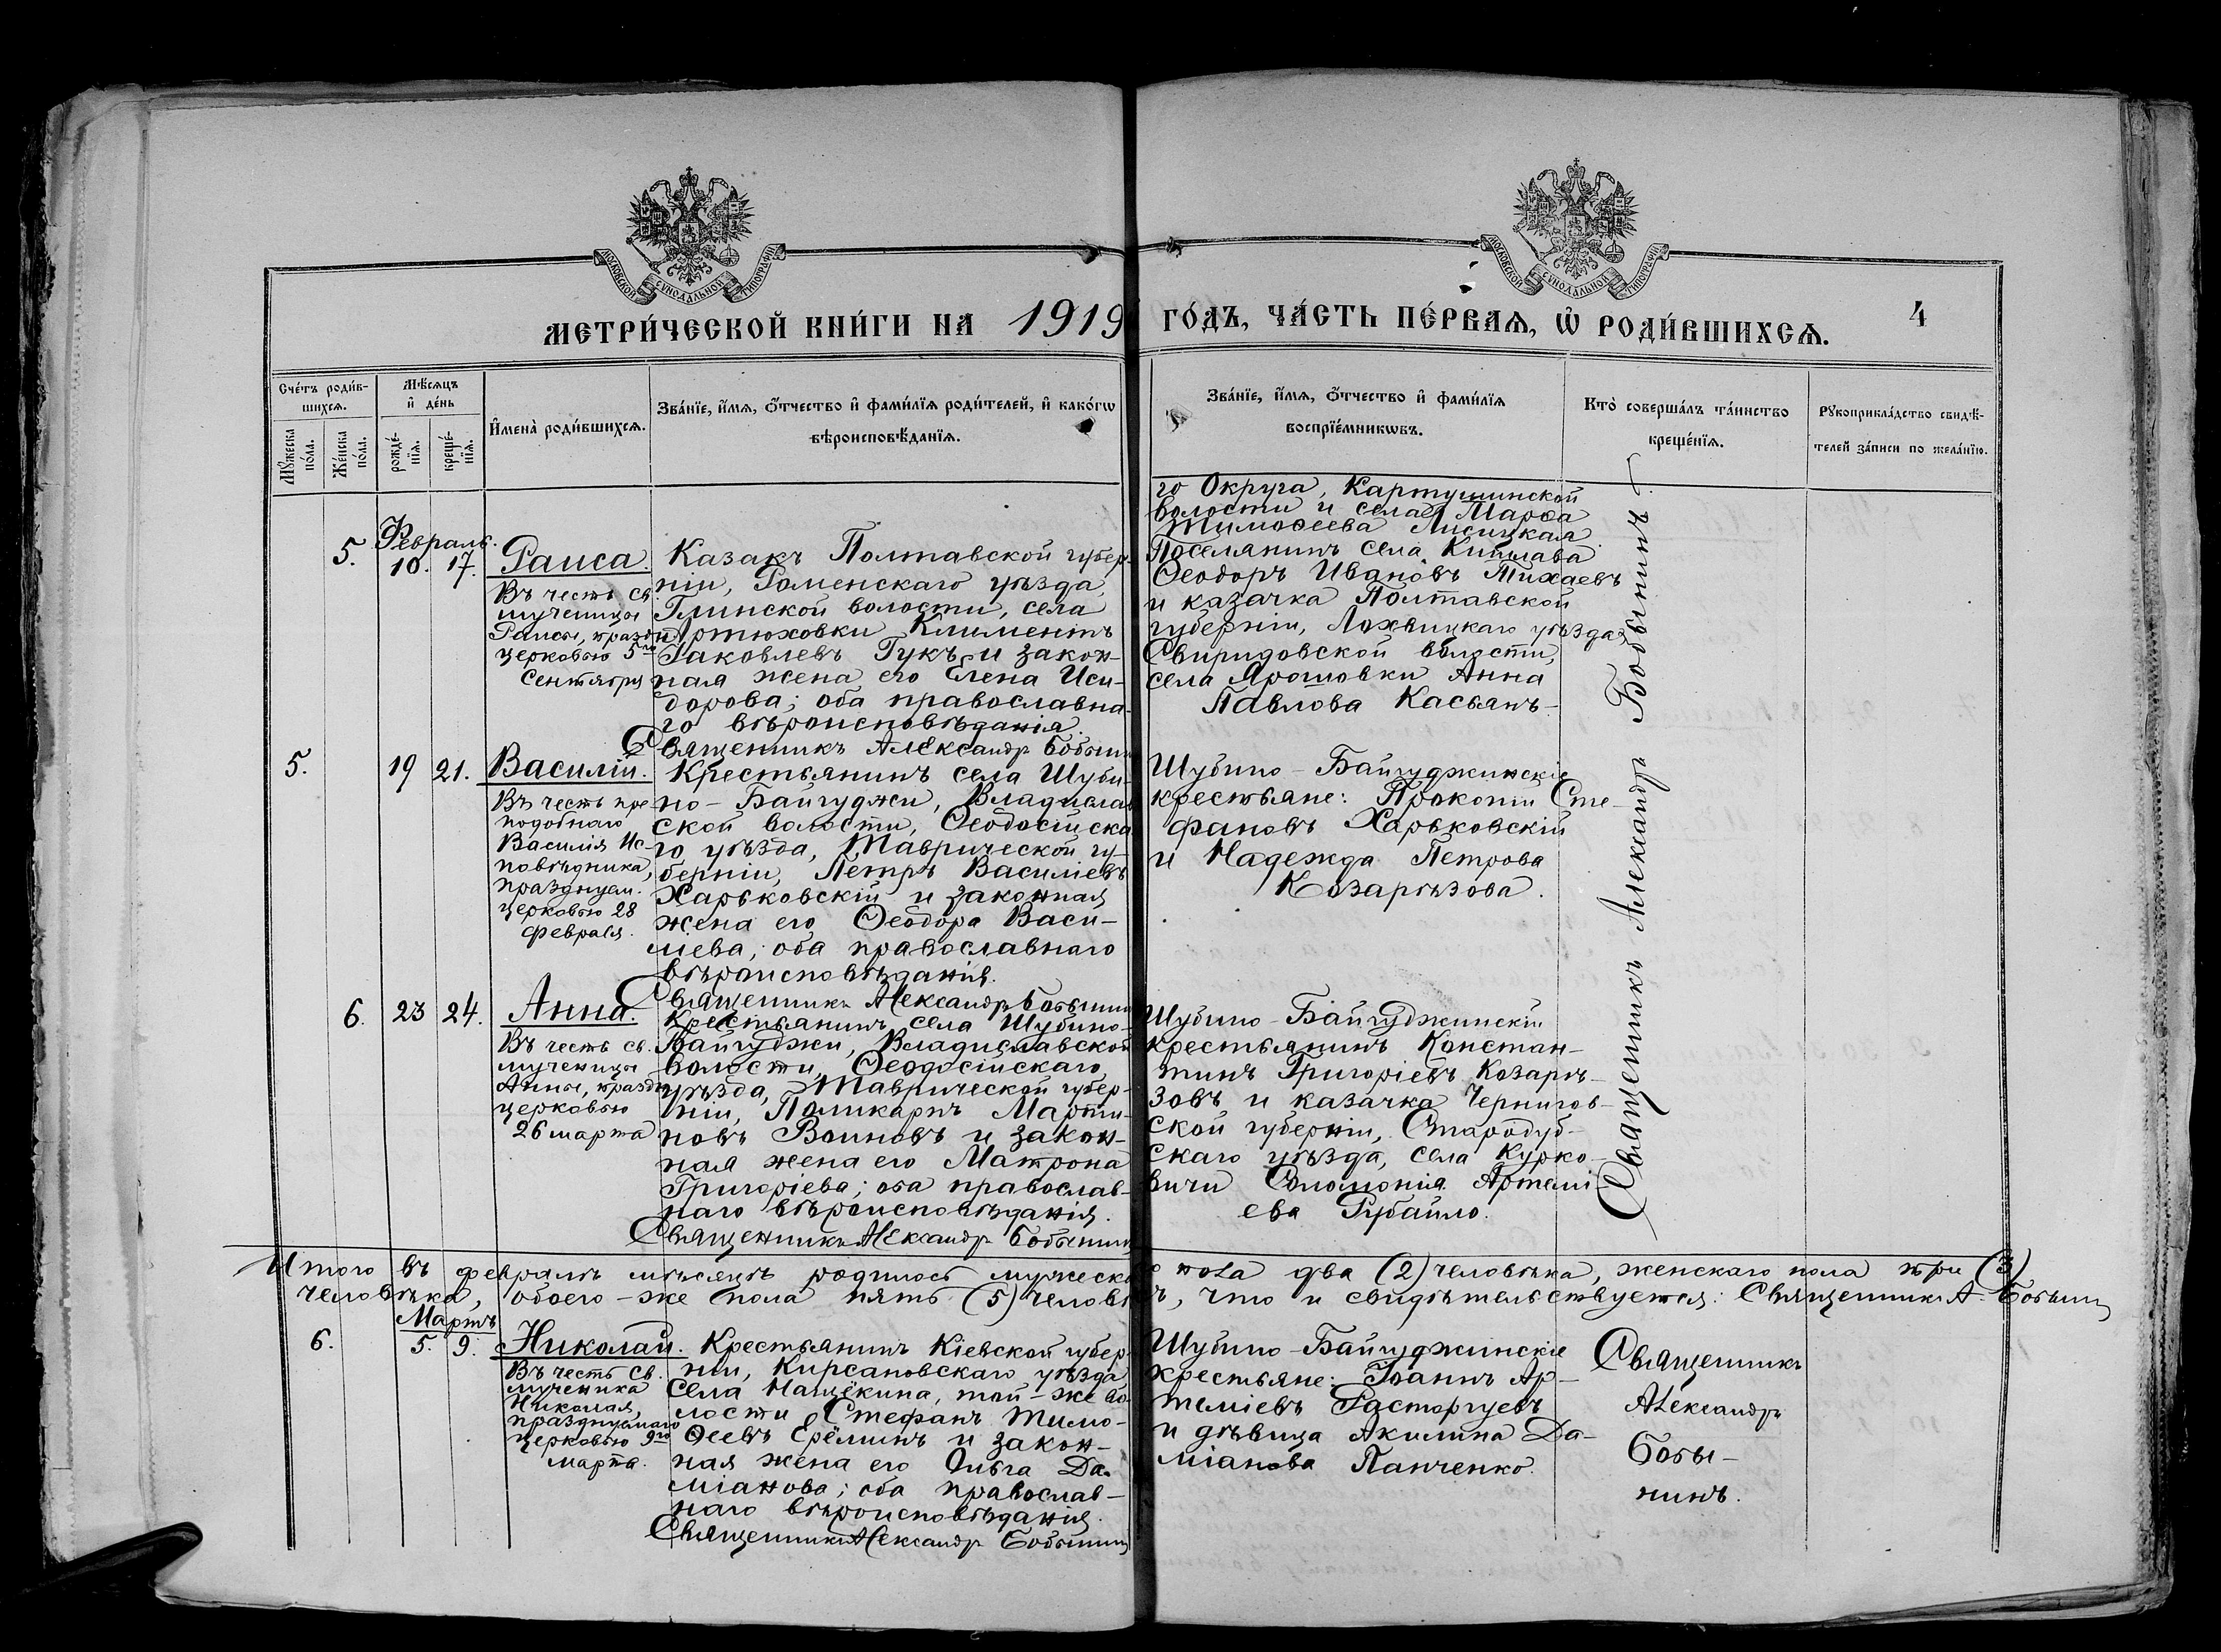 МОСКОВСКОЙ СѴНОДАЛЬНОЙ ТИПОГРАФІИ
МОСКОВСКОЙ СѴНОДАЛЬНОЙ ТИПОГРАФІИ
МЕТРИ́ЧЕСКОЙ КНИ́ГИ НА 1919 ГО́ДЪ, ЧА́СТЬ ПЕ́РВАѦ, Ѿ РОДИ́ВШИХСѦ. 4
Сче́тъ роди́в-
шихсѧ.
Мꙋ́жеска по́ла.
Же́нска по́ла.
Мѣ́сѧцъ и҆ де́нь
рожде́-нїѧ.
креще́-нїѧ.
И҆мена̀ роди́вшихсѧ.
Зва́нїе, и҆́мѧ, ѻ҆́тчество и҆ фами́лїѧ роди́телей, и҆ како́гѡ
вѣроисповѣ́данїѧ.
Зва́нїе, и҆́мѧ, ѻ҆́тчество и҆ фами́лїѧ
воспрїе́мникѡвъ.
Кто̀ соверша́лъ та́инство
креще́нїѧ.
Рꙋкоприкла́дство свидѣ́-
телей за́писи по жела́нїю.
го Округа, Картушинской
волости и села Марѳа
Тимоѳеева Лисицкая
Февраль.
5. 10. 17. Раиса.
Въ честь св.
мученицы
Раисы, праздн.
церковью 5го
Сентября
Казакъ Полтавской губер-
ніи, Роменскаго уѣзда,
Глинской волости, села
Артюховки Климентъ
Іаковлевъ Гукъ и закон-
ная жена его Елена Иси-
дорова; оба православна-
го вѣроисповѣданія.
Священникъ Александръ Бобынин
Поселянинъ села Кишлава
Ѳеодоръ Ивановъ Михаевъ
и казачка Полтавской
губерніи, Лохвицкаго уѣзда,
Свиридовской волости,
села Ярошовки Анна
Павлова Касьянъ.
5. 19 21. Василій.
Въ честь пре
подобнаго
Василія Ис-
повѣдника,
празднуем.
церковью 28
февраля.
Крестьянинъ села Шуби-
но-Байгуджи, Владислав
ской волости, Ѳеодосійска
го уѣзда, Таврической гу-
берніи, Петръ Василіевъ
Харьковскій и законная
жена его Ѳеодора Васи-
ліева; оба православнаго
вѣроисповѣданія.
Священникъ Александръ Бобынин
Шубино-Байгуджинскіе
крестьяне: Прокопій Сте-
фановъ Харьковскій
и Надежда Петрова
Козарѣзова.
6. 23 24. Анна.
Въ честь св.
мученицы
Анны, праздн.
церковью
26 марта
Крестьянинъ села Шубино-
Байгуджи, Владиславской
волости, Ѳеодосійскаго
уѣзда, Таврической губер-
ніи, Поликарпъ Марти-
новъ Воиновъ и закон-
ная жена его Матрона
Григоріева; оба православ-
наго вѣроисповѣданія.
Священникъ Александръ Бобынин
Шубино-Байгуджинскій
крестьянинъ Констан-
тинъ Григоріевъ Козарѣ-
зовъ и казачка Чернигов-
ской губерніи, Стародуб-
скаго уѣзда, села Курко-
вичи Соломонія Артемі-
ева Рубайло.
Священникъ Александръ Бобынинъ.
Итого въ февралѣ мѣсяцѣ родилось мужеско го пола два (2) человѣка, женскаго пола три (3)
человѣка, обоего-же пола пять (5) человѣкъ, что и свидѣтельствуется: Священникъ А. Бобынин
Мартъ
6. 5. 9. Николай.
Въ честь св.
мученика
Николая,
празднуемаго
церковью 9го
марта.
Крестьянинъ Кіевской губер-
ніи, Кирсановскаго уѣзда
села Нащёкина, той-же во-
лости Стефанъ Тимо-
ѳеевъ Ерёминъ и закон-
ная жена его Ольга Да-
міанова; оба православ-
наго вѣроисповѣданія.
Священникъ Александръ Бобынин
Шубино-Байгуджинскіе
крестьяне: Іоаннъ Ар-
теміевъ Расторгуевъ
и дѣвица Акилина Да-
міанова Панченко.
Священникъ
Александръ
Бобы-
нинъ.